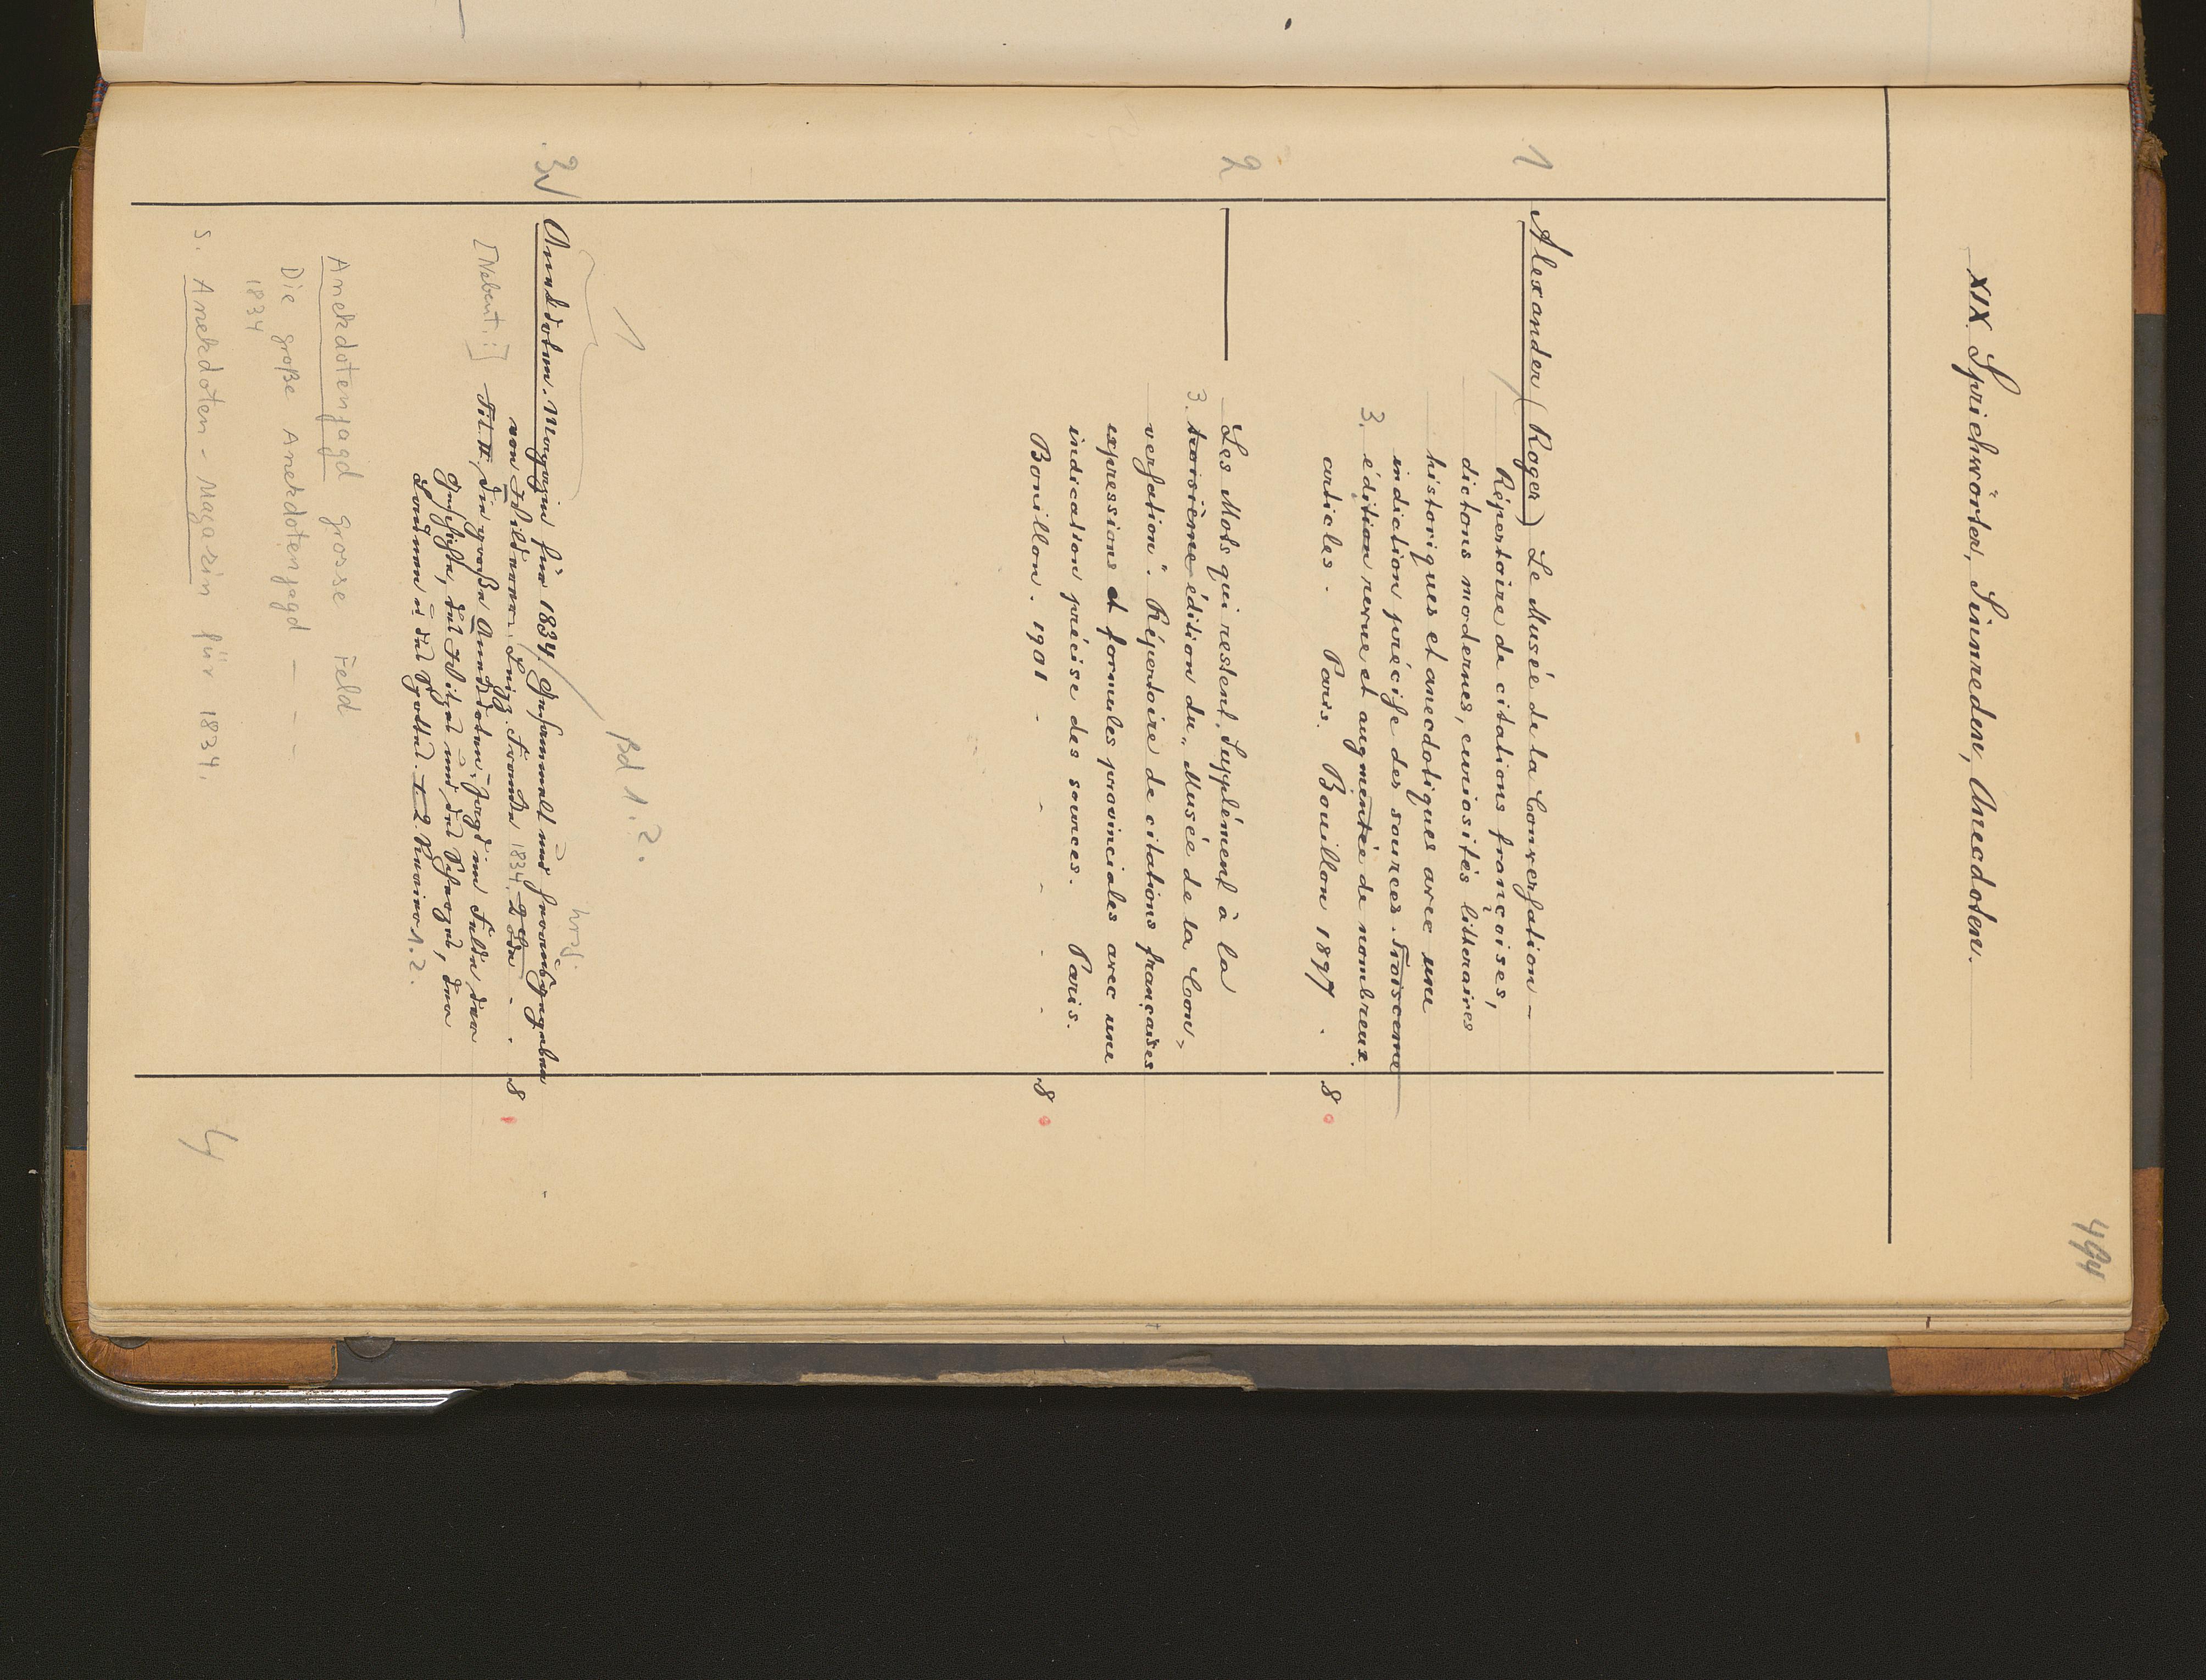 494
XIX. Sprichwörter, Sinnreden, Anecdoten.
1 Alexander (Roger) Le Musée de la Conversation –
Répertoire de citations françaises,
dictons modernes, curiosités litteraires
historiques et anecdotiques avec une
indiction précise des sources. Troiseme
3. édition revue et augmentée de nombreux
articles. Paris. Bouillon 1897. 8
2 — Les Mots qui restent, Supplément à la
3. troisième édition du „Musée de la Con-
versation". Répertoire de citations françaises
expressions et formules provinciales avec une
indication précise des sources. Paris.
Bouillon. 1901 - - - - - 8
1 Bd 1.2.
hrsg.
3 Anekdoten-Magazin für 1834. Gesammelt und herausgegeben
von Leipz. Franke 1834. 2 Bde - . 8
[Nebent.:] Tit. II, die große Anekdoten-Jagd im Felde der
Geschichte, des Witzes und des Scherzes, der
Launen u des Spottes. 1. 2. Revier 1. 2.
Anekdotenjagd grosse Feld
Die große Anekdotenjagd – – –
1834
s. Anekdoten-Magazin für 1834.
4